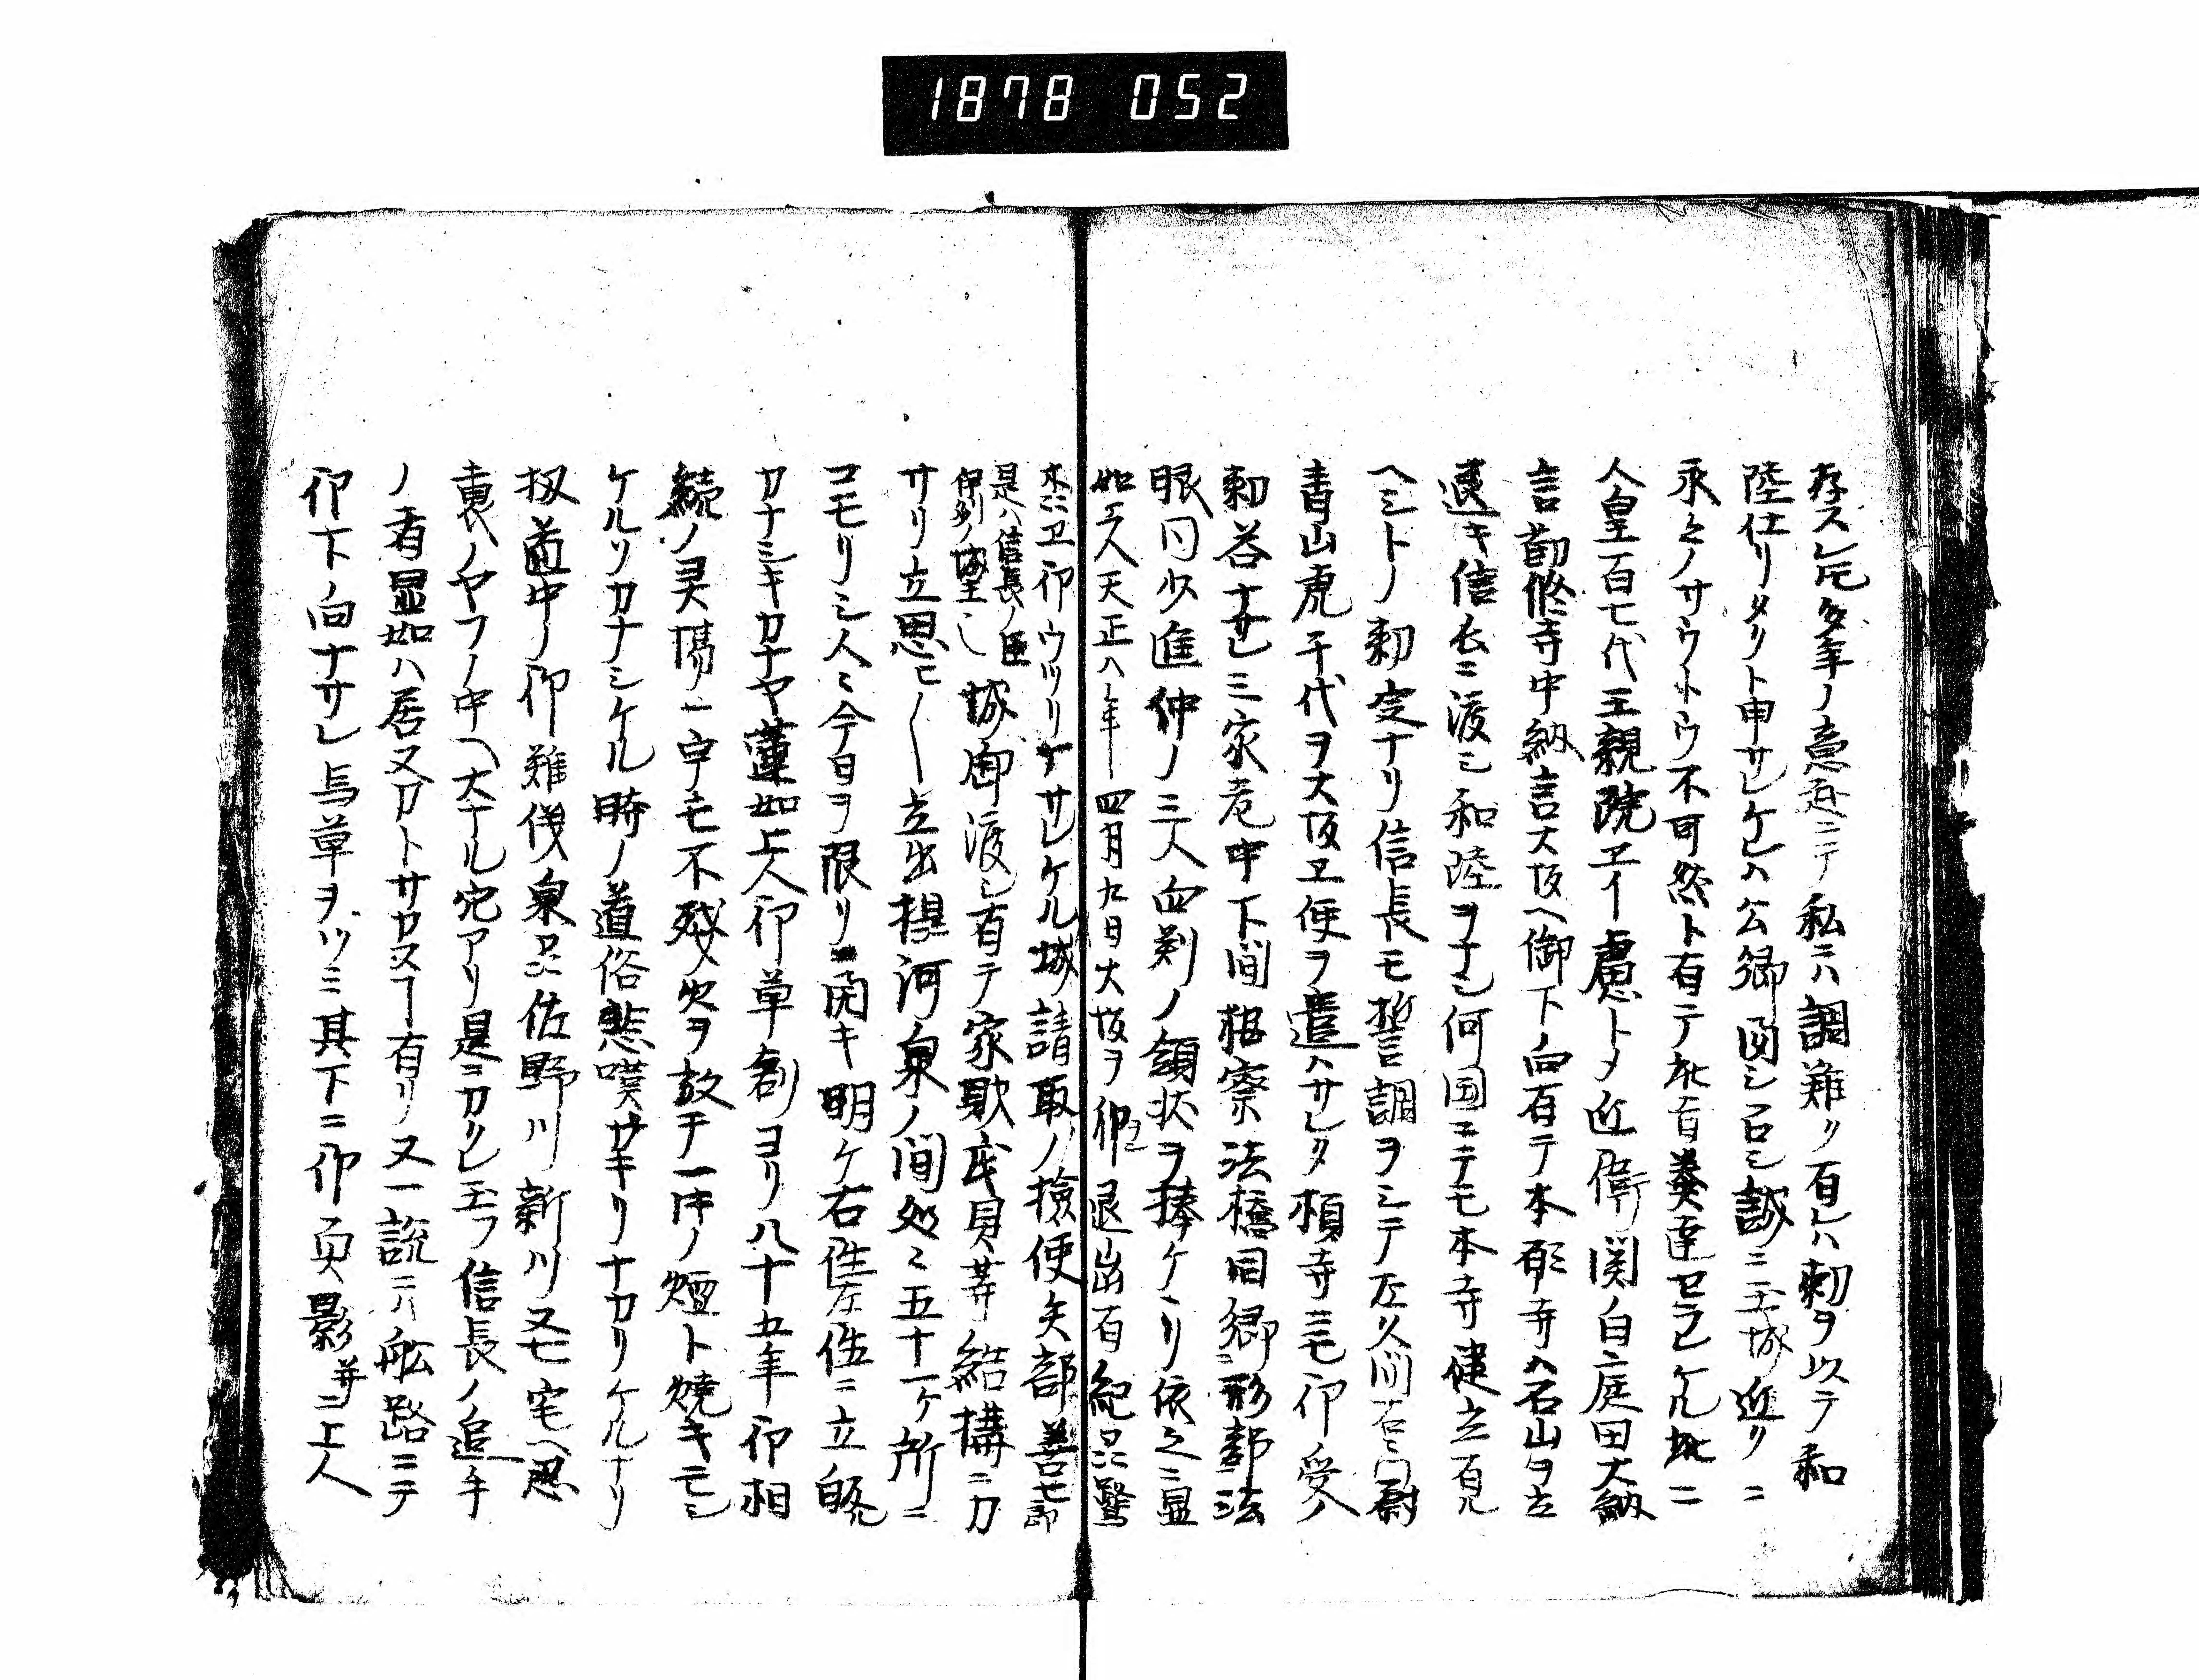 1878 052
存スレ𪜈多年ノ意趣ニテ私ニハ調難ク有レハ勅ヲ以テ和
陸仕リタリト申サレケレハ公卿図シ召シ誠ニ王城近クニ
永々ノサウトウ不可然ト有テ此旨奏達セラレケル此ニ
人皇百七代王親院エイ慮トメ近衛関白庭田大納
言勧修寺中納言大坂ヘ御下向有テ本願寺ハ石山ヲ立
退キ信長ニ渡シ和陸ヲナシ何国ニテモ本寺健立有
ヘシトノ勅定ナリ信長モ誓調ヲシテ左久間右エ門尉
青山虎千代ヲ大坂エ使ヲ遣ハサレタ頼寺ニモ印受ノ
勅答ナサレ三家老中下間根察法橋同郷刑部法
眼同少進仲ノ三人血判ノ領状ヲ捧ケヽリ依之ニ显
如上人天正八年四月九日大坂ヲ御退出有紀州鷺
木江エ印ウツリナサレケル城請取ノ検使矢部善七郎
是ハ信長ノ臣
伊勢ノ城主シ 城御渡シ有テ家歎武具等結構ニカ
サリ立思ヒ〳〵立出摂河泉ノ間処々五十一ケ所ニ
コモリシ人々今日ヲ限リニ開キ明ケ右徃左徃ニ立皈
カナシキカナヤ蓮如上人印草創ヨリ八十五年印相
続ノ灵場一宇モ不残火ヲ放チ一時ノ煙ト焼キモシ
ケルソカナシケル時ノ道俗悲嘆サキリナカリケルナリ
扨道中ノ印難伐泉州佐野川新川又七宅ヘ忍
裏ノヤフノ中ヘ大ナル穴アリ是ニカクレ玉フ信長ノ追手
ノ者显如ハ居又カトサカス𪜈有リ又一説ニハ舩路ニテ
印下向ナサレ与草ヲツミ其下ニ印真影并ニ上人